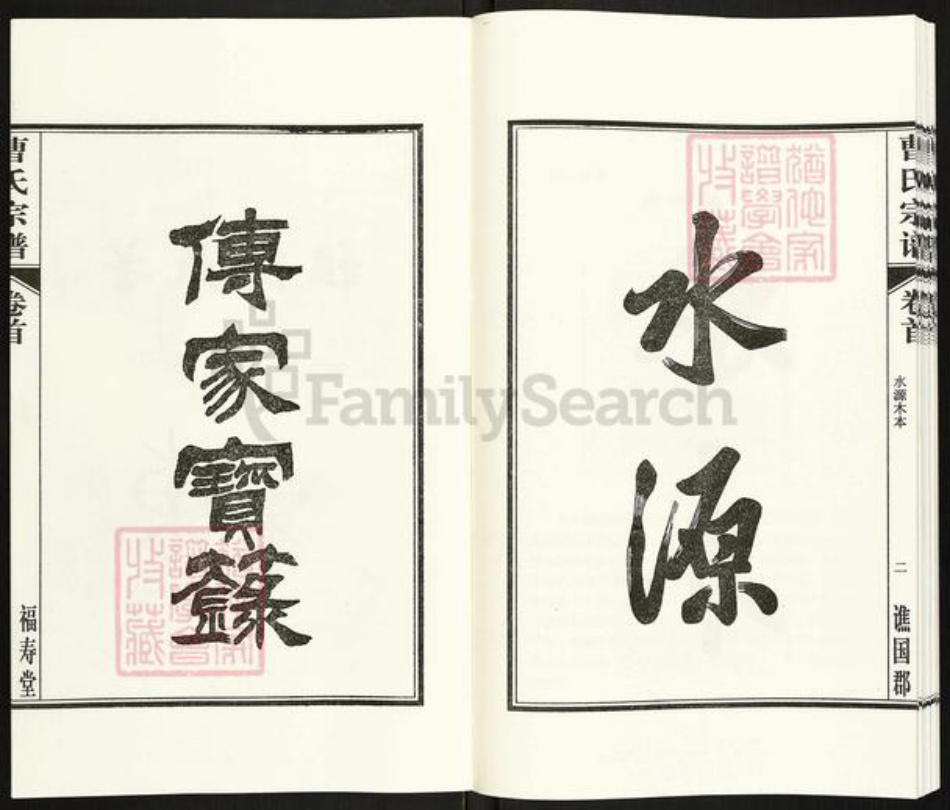 曹氏宗谱
卷首
水源木本
二
谯国郡
水源
傳家寶籙
曹氏宗谱
卷首
福寿堂
FamilySearch